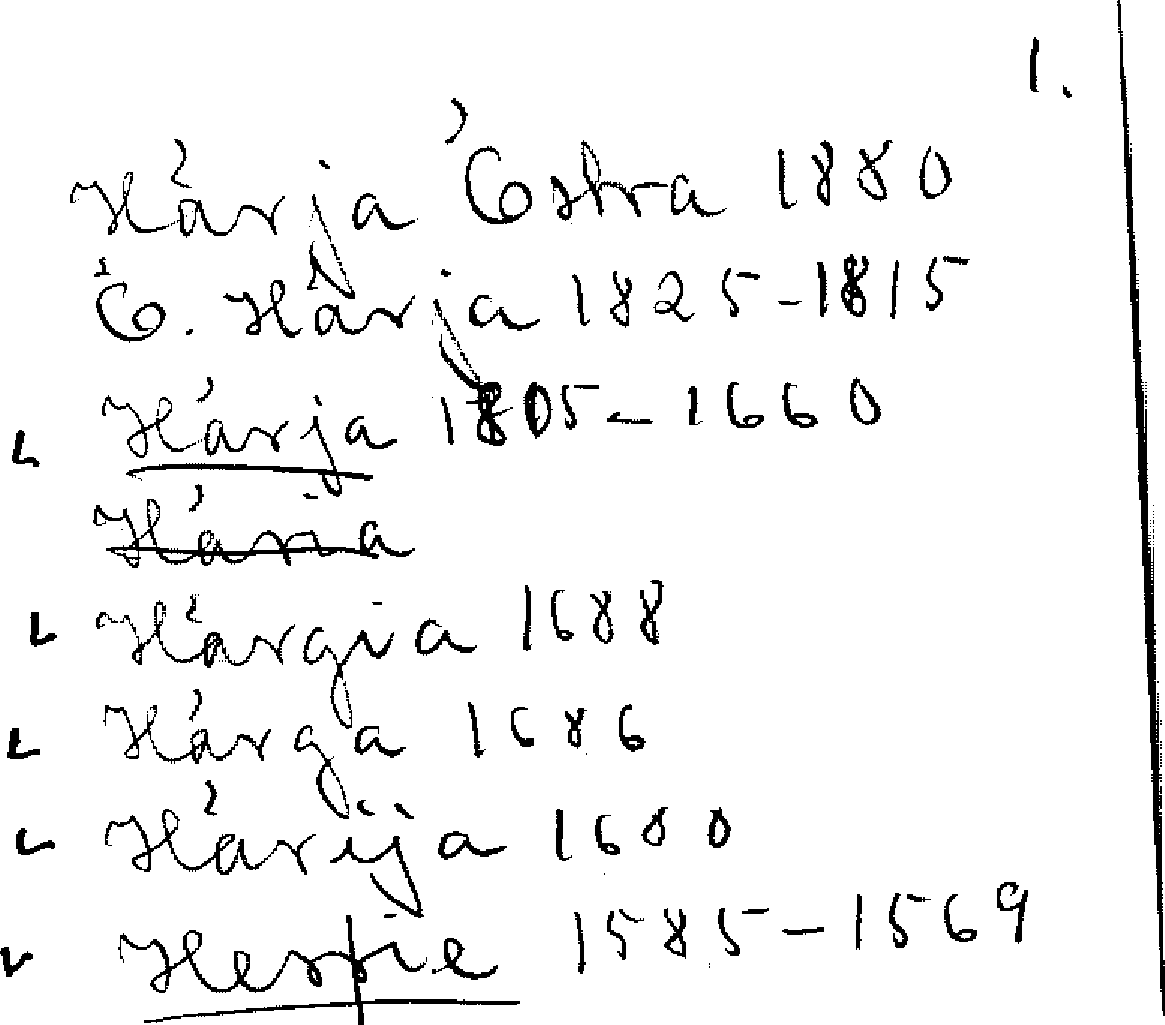 1.
Härja Östra 1880
Ö. Härja 1825-1815
Härja 1805-1660
Häria
Härgia 1688
Härga 1686
Härija 1600
Herpie 1585-1569